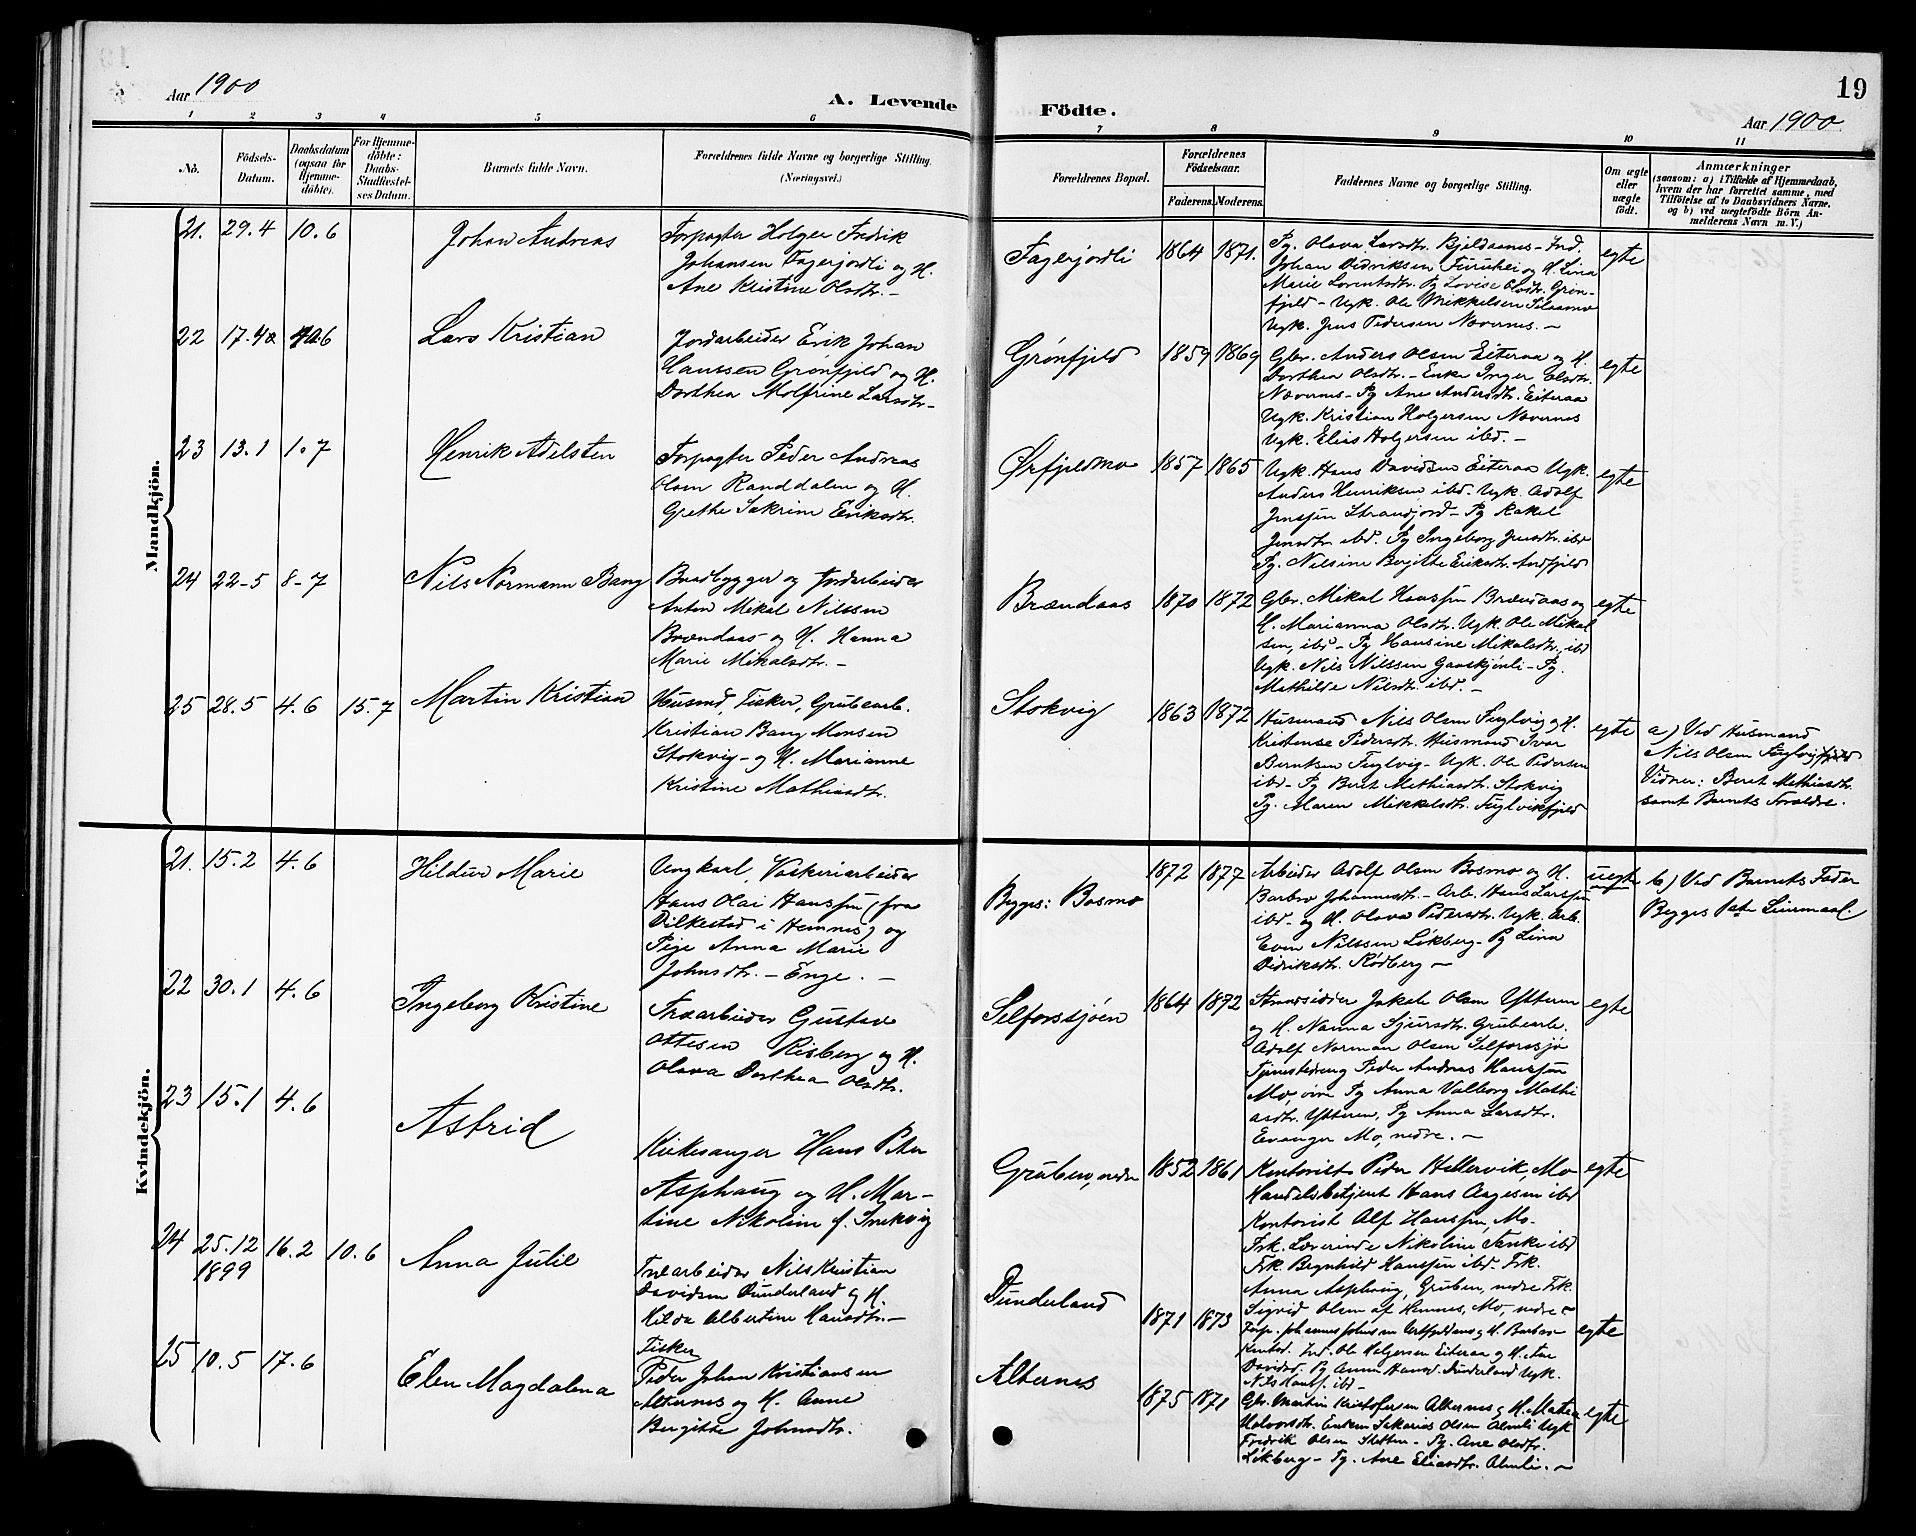 19
Aar 1900
A. Levende
Födte.
Aar 1900
1 2 3 4 5 6 7 8 9 10 11
No.
Födsels-
Datum.
Daabsdatum
(ogsaa for
Hjemme-
döbte).
For Hjemme-
döbte:
Daabs-
Stadfæstel-
ses Datum.
Barnets fulde Navn.
Forældrenes fulde Navne og borgerlige Stilling.
(Næringsvei.)
Forældrenes Bopæl.
Forældrenes
Födselsaar.
Faderens. Moderens.
Faddernes Navne og borgerlige Stilling.
Om ægte
eller
uægte
födt.
Anmærkninger
(saasom: a) i Tilfælde af Hjemmedaab,
hvem der har forrettet samme, med
Tilföielse af to Daabsvidners Navne.
og b) ved uægtefödte Börn An-
melderens Navn m. V.)
Mandkjön.
21. 29.4 10.6
Johan Andreas
Forpagter Holger Fredrik
Johansen Fagerjordli og H.
Ane Kristine Olsdtr. –
Fagerjordli
1864 1871.
Pg. Olava Larsdtr. Bjeldaanes – Ind.
Johan Didriksen Furuhei og H. Lina
Marie Lorentsdtr. Pg Lovise Olsdtr. Grøn-
fjeld – Ugk. Ole Mikkelsen
Ugk. Jens Pedersen Nævernes. –
egte
22 17.4
Lars Kristian
Jordarbeider Erik Johan
Hanssen Grønfjeld og H.
Dorthea Molfrine Larsdtr –
Grønfjeld
1859 1869
Gbr. Anders Olsen Eiteraa og H.
Dorthea Olsdtr. – Enke Inger Olsdtr.
Nævernes – Pg Ane Andersdtr. Eiteraa
Ugk. Kristian Holgersen Nævernes
Ugk. Elias Holgersen ibd. –
egte
23 13.1 1.7
Henrik Adelsten
Forpagter Peder Andreas
Olsen Randdalen og H.
Grethe Sakrine Eriksdtr.
Ørfjeldmo
1857 1865
Ugk. Hans Davidsen Eiteraa Ugk.
Anders Henriksen ibd. Ugk. Adolf
Jenssen Strandjord – Pg Rakel
Jensdtr ibd. Pg Ingeborg Jensdtr. ibd
Pg. Nilsine Bergitte Eriksdtr. Andfjeld
egte
24 22-5 8-7
Nils Normann Bang
Brødbygger og Jordarbeider
Anton Mikal Nilssen
Brændaas og H. Hanna
Marie Mikalsdtr. –
Brændaas
1870 1872
Gbr. Mikal Hanssen Brændaas og
H. Marianna Olsdtr. Ugk. Ole Mikal
sen, ibd – Pg Hansine Mikalsdtr. ibd
Ugk. Nils Nilssen Gauskjønli – Pg.
Mathilde Nilsdtr. ibd. –
egte
25 28.5 4.6 15.7
Martin Kristian
Husmd, Fisker, Grubearb.
Kristian Bang Monsen
Stokvig – og H. Marianne
Kristine Mathiasdtr.
Stokvig
1863 1872
Husmand Nils Olsen Fuglvig og H.
Kristense Pedersdtr. Husmand Ivar
Berntsen Fuglvig – Ugk. Ole Pedersen
ibd – Pg Beret Mathiasdtr. Stokvig
Pg. Maren Mikkelsdtr. Fuglvikfjeld
egte
a) Ved Husmand
Nils Olsen Fuglvig
Vidner: Beret Mathiasdtr.
samt Barnets Forældre.
Kvindekjön.
21. 15.2 4.6
Hildur Marie
Ungkarl, Vaskeriarbeider
Hans Olai Hanssen (fra
Dilkestad i Hemnes) og
Pige Anna Marie
Johnsdtr. – Enge. –
Bygges: Bosmo
1872 1877
Arbeider Adolf Olsen Bosmo og H.
Barbro Johannesdtr – Arb. Hans Larssen
ibd. – og H. Olava Pedersdtr. Ugk. Arb.
Even Nilssen Likberg – Pg Lina
Didriksdtr. Rødberg –
uegte
b) Ved Barnets Fader
Bygges
22 30.1 4.6
Ingeborg Kristine
Træarbeider Gustav
Ottesen Risberg og H.
Olava Dorthea Olsdtr.
Selforssjøen
1864 1872
Strandsidder Jakob Olsen Ytteren
og H. Nanna Sjursdtr. Grubearb.
Adolf Norman Olsen Selforssjø
Tjenestedreng Peder Andreas Hanssen
Mo, øvre Pg Anna Valborg Mathi
asdtr. Ytteren, Pg Anna Larsdtr.
Evanger Mo, nedre. –
egte
23 15.1 4.6
Astrid
Kirkesanger Hans Peter
Asphaug og H. Mar-
tine Nikoline f. Snekvig
Gruben, nedre
1852 1861
Kontorist Peder Hellervik, Mo
Handelsbetjent Hans Aagesen ibd
Kontorist Alf Hanssen, Mo.
Frk. Lærerinde Nikoline Tanke ibd
Frk. Brynhild Hanssen ibd. Frk.
Anna Asphaug, Gruben, nedre Frk.
Sigrid Olsen af Hemnes, Mo, nedre –
egte
24 25.12 1899 16.2 10.6
Anna Julie
Træarbeider Nils Kristian
Davidsen Dunderland og H.
Hilda Albertine Hansdtr. –
Dunderland
1871 1873
Forp. Johannes Johnsen og H. Barbro
Ind. Ole Holgersen Eiteraa og H. Ane
Davidsd. Pg Anna Hansd. Dunderland Ugk.
Nils Hanss. ibd –
egte
25 10.5 17.6
Elen Magdalena
Fisker
Peder Johan Kristiansen
Alternes og H. Anne
Bergitte Johnsdtr.
Alternes
1875 1871
Gbr. Martin Kristofersen Alternes og H. Martha
Halvorsdtr. Enkem Sakarias Olsen Almli Ugk
Fredrik Olsen Stetten – Pg. Ane Olsdtr.
Likberg – Pg. Ane Eliasdtr. Almli. –
egte